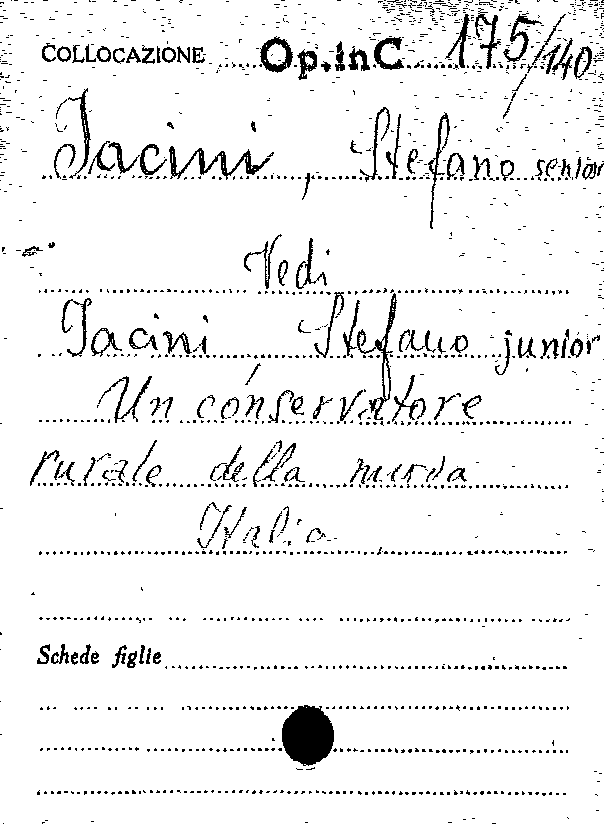 COLLOCAZIONE Op.inC 175/140
Jacini, Stefano senior
Vedi
Jacini, Stefano junior
Un conservatore
rurale della nuova
Italia
Schede figlie